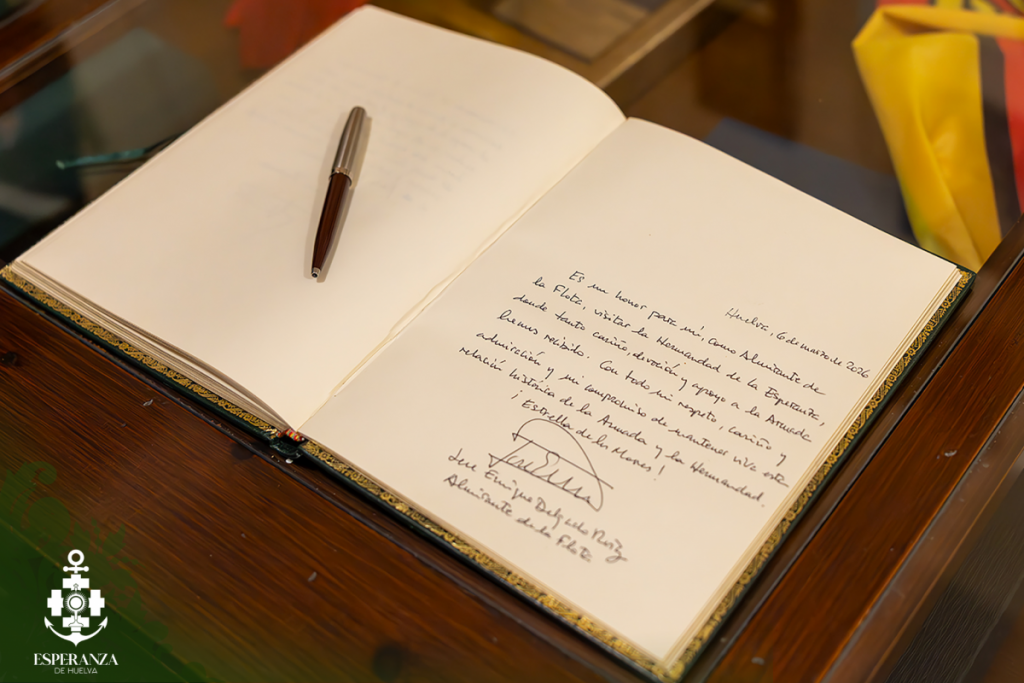 Huelva, 6 de marzo de 2026
Es un honor para mi, como Almirante de
la Flota, visitar la Hermandad de la Esperanza,
donde tanto cariño, devoción y apoyo a la Armada
hemos recibido. Con todo mi respeto, cariño y
admiración y mi compromiso de mantener viva esta
relación histórica de la Armada y la Hermandad.
¡Estrella de los Mares!
Jose Enrique Delgado Roig
Almirante de la Flota
ESPERANZA
DE HUELVA